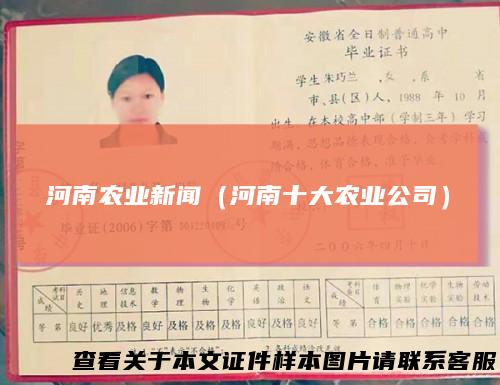 安徽省全日制普通高中
毕业证书
学生朱巧兰 ,女 ,系 省
市、县(区)人,1988年10月
出生,在本校高中部(学制三年)学习
期满,思想品德表现合格,会考学科成
绩合格,体育合格,准予毕业。
河南农业新闻(河南十大农业公司)
毕业证(2006)字第
二00六年四月十日
成绩 科目 历史 地理 信息技术 数学 物理 生物 化学 英语 政治 语文
等第 良好 优秀 及格 良好 及格 及格 及格 良好 良好 良好
成绩 考查科目 体育 物理实验 化学实验 生物实验 劳动技术
等第 合格 合格 合格 合格 合格
查看关于本文证件样本图片请联系客服